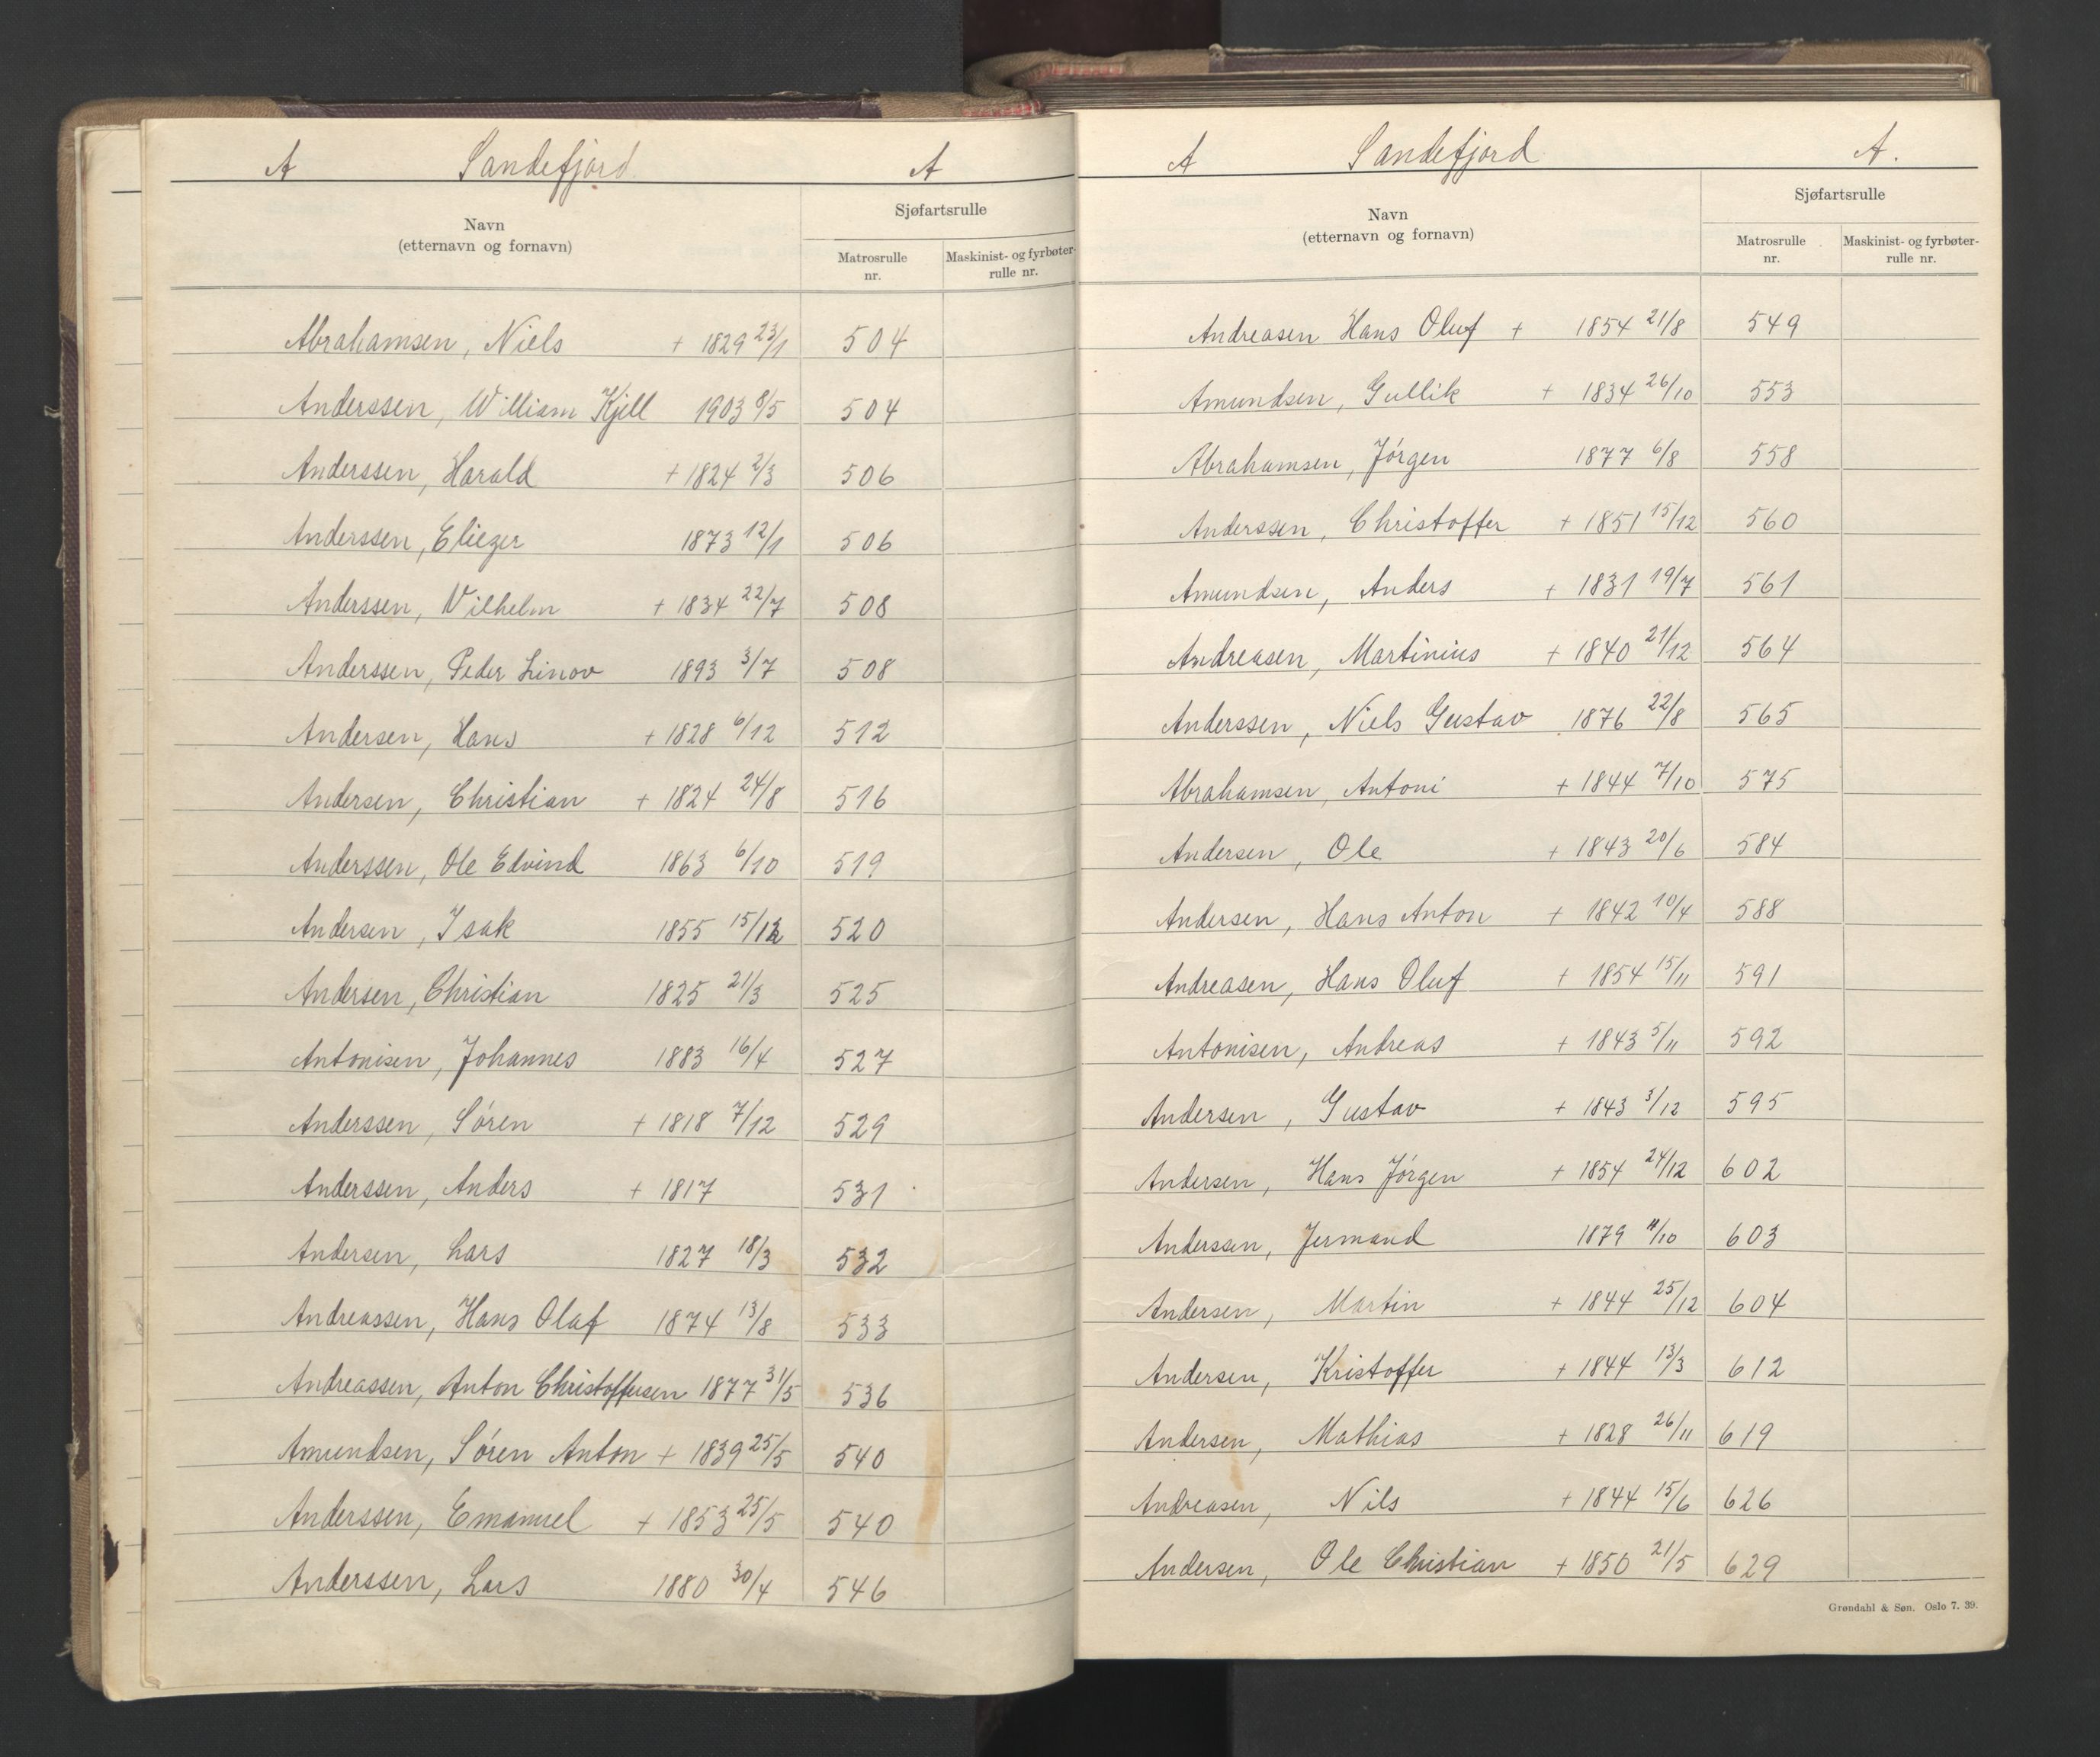 A Sandefjord A
Navn
(etternavn og fornavn)
Sjøfartsrulle
Matrosrulle
nr.
Maskinist- og fyrbøter-
rulle nr.
Abrahamsen, Niels + 1829 23/1 504
Anderssen, William Kjell 1903 8/5 504
Anderssen, Harald + 1824 2/3 506
Anderssen, Eliezer 1873 12/1 506
Anderssen, Wilhelm + 1834 22/7 508
Anderssen, Peder Linov 1893 3/7 508
Andersen, Hans + 1828 6/12 512
Andersen, Christian + 1824 24/8 516
Anderssen, Ole Edvind 1863 6/10 519
Andersen, Isak 1855 15/12 520
Andersen, Christian 1825 21/3 525
Antonisen, Johannes 1883 16/4 527
Anderssen, Sören + 1818 7/12 529
Anderssen, Anders + 1817 531
Andersen, Lars 1827 18/3 532
Andreassen, Hans Olaf 1874 13/8 533
Andreassen, Anton Christoffersen 1877 31/5 536
Amundsen, Sören Anton + 1839 25/5 540
Anderssen, Emanuel + 1853 25/5 540
Anderssen, Lars 1880 30/4 546
A Sandefjord A.
Navn
(etternavn og fornavn)
Sjøfartsrulle
Matrosrulle
nr.
Maskinist- og fyrbøter-
rulle nr.
Andreasen Hans Oluf + 1854 21/8 549
Amundsen, Gullik + 1834 26/10 553
Abrahamsen, Jörgen 1877 6/8 558
Anderssen, Christoffer + 1851 15/12 560
Amundsen, Anders + 1831 19/7 561
Andreasen, Martinius + 1840 21/12 564
Anderssen, Niels Gustav 1876 22/8 565
Abrahamsen, Antoni + 1844 7/10 575
Andersen, Ole + 1843 20/6 584
Andersen, Hans Anton + 1842 10/4 588
Andreasen, Hans Oluf + 1854 15/11 591
Antonisen, Andreas + 1843 5/11 592
Andersen, Gustav + 1843 3/12 595
Andersen, Hans Jörgen + 1854 24/12 602
Anderssen, Jermand 1879 4/10 603
Andersen, Martin + 1844 25/12 604
Andersen, Kristoffer + 1844 13/3 612
Andersen, Mathias + 1828 26/11 619
Andreasen, Nils + 1844 15/6 626
Andersen, Ole Christian + 1850 21/5 629
Grøndahl & Søn. Oslo 7. 39.